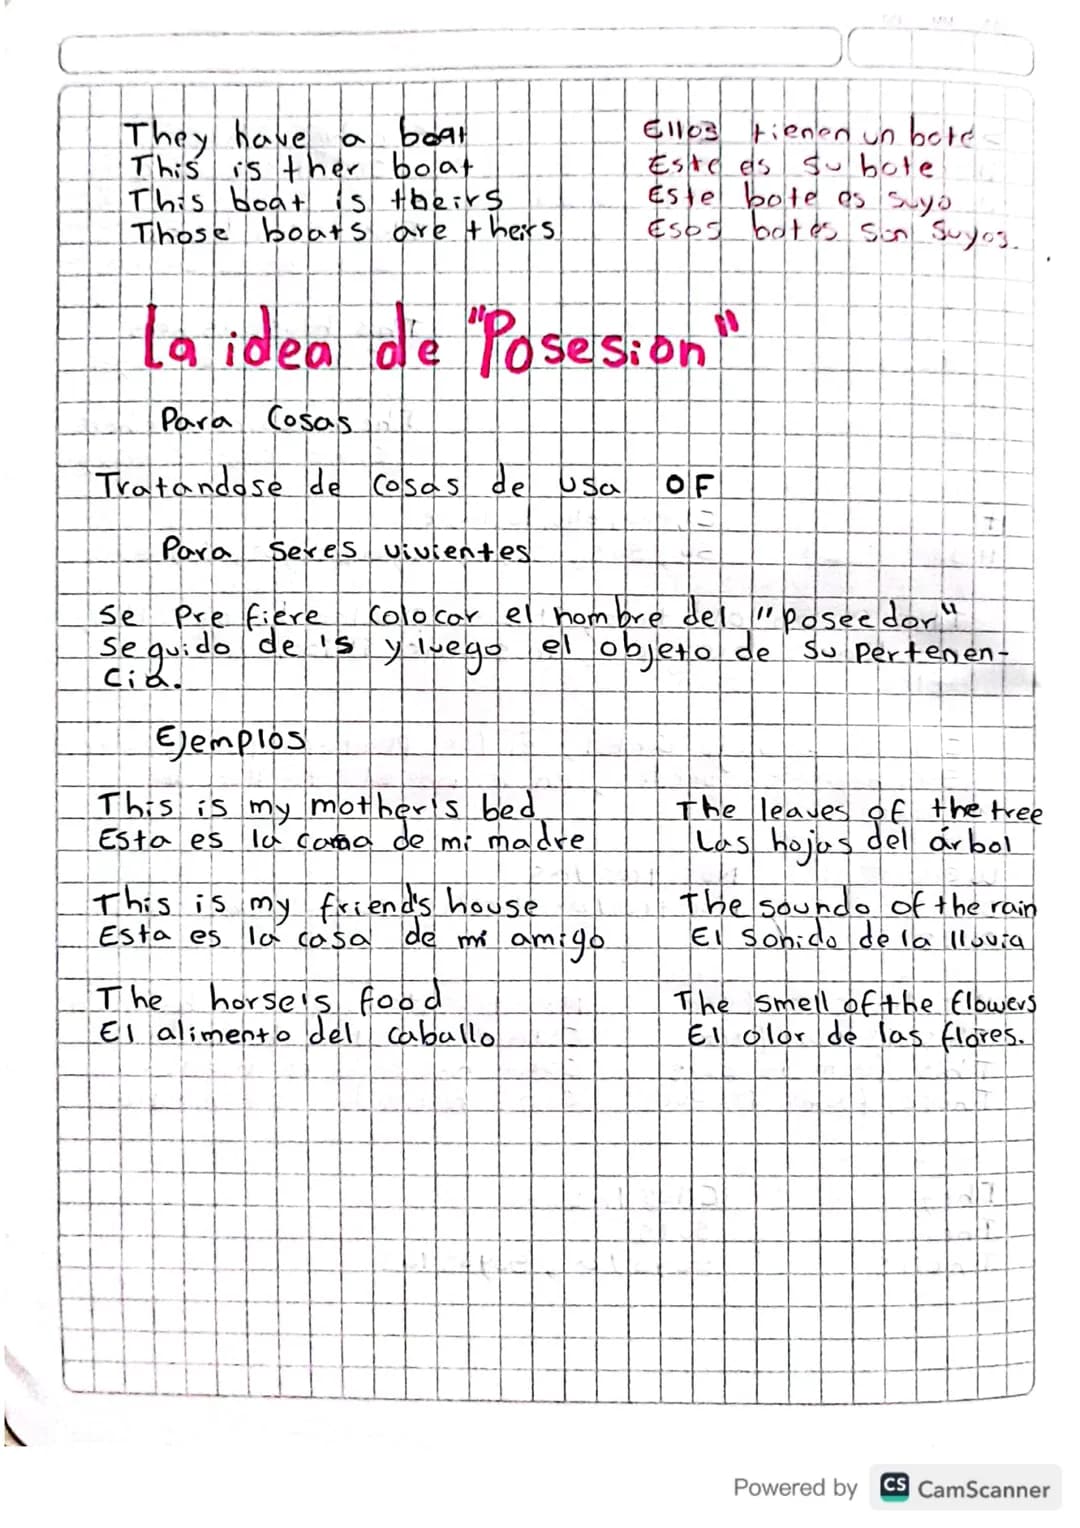 They have a boat Ellos tienen un bote
This is ther boat Este es su bote
This boat is theirs Este bote es suyo
Those boats are theirs Esos botes son suyos.
La idea de "Posesion"
Para Cosas
Tratandose de cosas de usa OF
Para seres vivientes
Se prefiere colocar el nombre del "poseedor"
Seguido de 's y luego el objeto de su pertenen-
cia.
Ejemplos
This is my mother's bed The leaves of the tree
Esta es la cama de mi madre Las hojas del árbol
This is my friend's house The soundo of the rain
Esta es la casa de mi amigo El sonido de la lluvia
The horse's food The smell of the flowers
El alimento del caballo El olor de las flores.
Powered by CS CamScanner